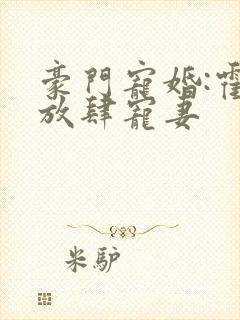 豪門寵婚:霍
放肆寵妻
米驴